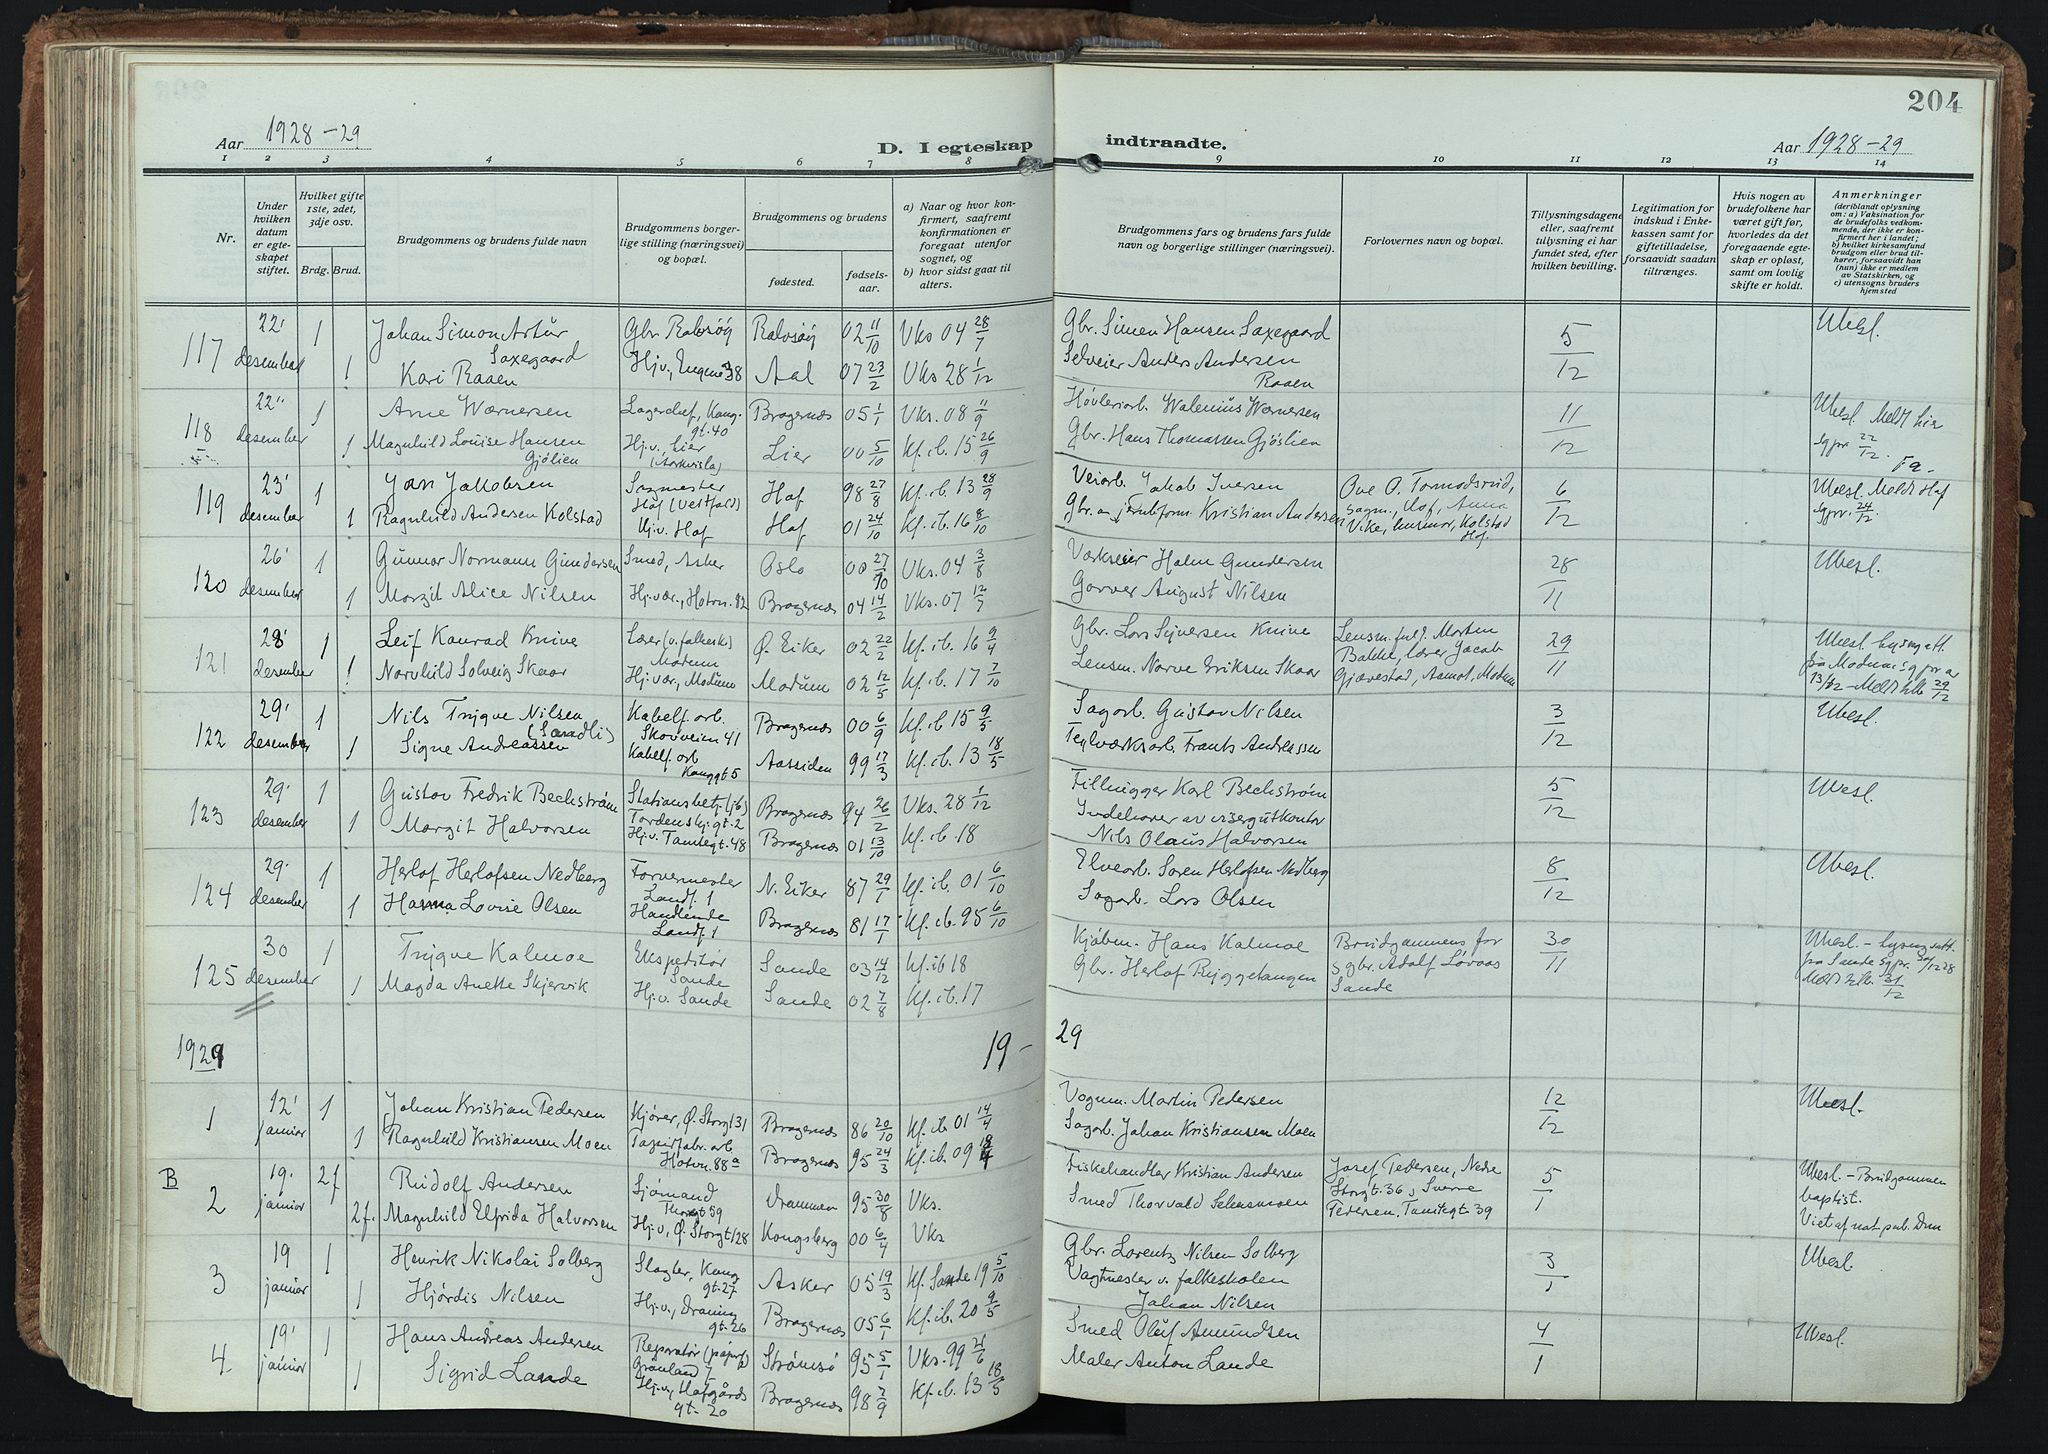 204
Aar 1928-29
D. I egteskap
indtraadte.
Aar 1928-29
1 2 3 4 5 6 7 8 9 10 11 12 13 14
Nr.
Under hvilken datum er egteskapet stiftet.
Hvilket gifte 1ste, 2det, 3dje osv.
Brdg. Brud.
Brudgommens og brudens fulde navn
Brudgommens borgerlige stilling (næringsvei) og bopæl.
Brudgommens og brudens
fødested.
fødselsaar.
a) Naar og hvor konfirmert, saafremt konfirmationen er foregaat utenfor sognet, og
b) hvor sidst gaat til alters.
Brudgommens fars og brudens fars fulde navn og borgerlige stillinger (næringsvei).
Forlovernes navn og bopæl.
Tillysningsdagene eller, saafremt tillysning ei har fundet sted, efter hvilken bevilling.
Legitimation for indskud i Enkekassen samt for giftetilladelse, forsaavidt saadan tiltrænges.
Hvis nogen av brudefolkene har været gift før, hvorledes da det foregaaende egteskap er opløst, samt om lovlig skifte er holdt.
Anmerkninger
(deriblandt oplysning om: a) Vaksination for de brudefolks vedkommende, der ikke er konfirmert her i landet; b) hvilket kirkesamfund brudgom eller brud tilhører, forsaavidt han (hun) ikke er medlem av Statskirken, og c) utensogns bruders hjemsted
117 22' desember 1 Johan Simon Artur Saxegaard Gbr. Ralvsøy Ralvsøy 02 11/10 Vks 04 28/7 Gbr. Simen Hansen Saxegaard 5/12 Ubesl.
1 Kari Raaen Hj.v., Engene 38 Aal 07 23/2 Vks 28 1/12 Selveier Anders Andersen Raaen
118 22" desember 1 Arne Wærnersen Lagerchef, Kong. gt. 40 Bragernæs 05 1/1 Vks. 08 11/9 Høvleriarb. Walenius Wærnersen 11/12 Ubesl. Meldt Lier Sgpr. 22/12
1 Magnhild Louise Hansen Gjølien Hj.v., Lier Lier 00 5/10 Kf. ib. 15 26/9 Gbr. Hans Thomassen Gjøslien
119 23' desember 1 Jan Jakobsen Sagmester Hof (Vestfold) Hof 98 27/8 Kf. ib. 13 28/9 Veiarb. Jakob Iversen Ove O. Tormodsrud, sagm., Hof, Anna Vike, husmor, Kolstad Hof 6/12 Ubesl. Meldt Hof Sgpr. 24/12
1 Ragnhild Andersen Kolstad Hj.v. Hof Hof 01 24/10 Kf. ib. 16 8/10 Gbr. og jernbform. Kristian Andersen
120 26' desember 1 Gunnar Normann Gundersen Smed, Asker Oslo 00 27/10 Vks. 04 3/8 Værkseier Holm Gundersen 28/11 Ubesl.
1 Margit Alice Nilsen Hj.vær., Hotvn. 82 Bragernæs 04 14/2 Vks. 07 12/7 Garver August Nilsen
121 28' desember 1 Leif Konrad Knive Lærer (v. folkesk.) Modum Ø. Eiker 02 22/2 Kf. ib. 16 9/4 Gbr. Lars Syversen Knive Lensm.fulm. Morten Bakke, lærer Jacob Gjævestad, Aamot, Modum 29/11 Ubesl. Lysng att. fra Modum Sgpr. a 13/12 - Meldt tilb. 29/12
1 Norvhild Solveig Skaar Hj.vær., Modum Modum 02 12/5 Kf. ib. 17 7/10 Lensm. Narve Eriksen Skaar
122 29' desember 1 Nils Trygve Nilsen (Saradli) Kabelf. arb. Skovveien 41 Bragernæs 00 6/9 Kf. ib 15 9/5 Sagarb. Gustav Nilsen 3/12 Ubesl.
1 Signe Andreassen Kabelf. arb Konggt 5 Aassiden 99 17/3 Kf. ib. 13 18/5 Teglværksarb. Frants Andreassen
123 29' desember 1 Gustav Fredrik Bechstrøm Stationsbetj. (jb) Tordenskj. gt. 2 Bragernæs 94 26/2 Vks. 28 1/12 Fillnigger Karl Bechstrøm 5/12 Ubesl.
1 Margit Halvorsen Hj.v. Tamtegt. 48 Bragernæs 01 13/10 Kf. ib. 18 Indehaver av visergutkontor Nils Olaus Halvorsen
124 29' desember 1 Herlof Herlofsen Nedberg Farvermester Landf. 1 N. Eiker 87 29/1 Kf. ib. 01 6/10 Elvearb. Søren Herlofsen Nedberg 8/12 Ubesl.
1 Hanna Lovise Olsen Handlende Landf. 1 Bragernæs 81 17/1 Kf. ib. 95 6/10 Sagarb. Lars Olsen
125 30 desember 1 Trygve Kalmoe Ekspeditør Sande Sande 03 14/12 Kf. ib 18 Kjøbm. Hans Kalmoe Brudgommens far & gbr. Adolf Løvaas Sande 30/11 Ubesl. - Lysng att. fra Sande Sgpr. 30/12 28 Meldt tilb. 31/12
1 Magda Anette Skjervik Hj.v. Sande Sande 02 7/8 Kf. ib. 17 Gbr. Herlof Ryggetangen
1929 19 - 29
1 12' januar 1 Johan Kristian Pedersen Kjører, Ø. Storgt 31 Bragernæs 86 20/10 Kf. ib 01 14/4 Vognm. Martin Pedersen 12/12 Ubesl.
1 Ragnhild Kristiansen Moen Papirfabr. arb Hotvn. 88a Bragernæs 95 24/3 Kf. ib. 09 18/4 Sagarb. Johan Kristiansen Moen
B 2 19. januar 2f Rudolf Andersen Sjømand Thorngt 59 Drammen 95 30/8 Vks. Fiskehandler Kristian Andersen Josef Pedersen, Nedre Storgt. 36 & Sverre Pedersen, Tamtegt. 39 5/1 Ubesl. - Brudgommen baptist. Viet af not. pub. Drm
2f. Magnhild Elfrida Halvorsen Hj.v, Ø. Storgt 128 Kongsberg 00 6/4 Vks Smed Thorvald Selensmoen
3 19 januar 1 Henrik Nikolai Solberg Slagter, Kong. gt. 27 Asker 05 19/3 Kf. Sande 19 5/10 Gbr. Lorentz Nilsen Solberg 3/1 Ubesl.
1 Hjørdis Nilsen Hj.v., Dronn. gt. 26 Bragernæs 05 6/1 Kf. ib. 20 9/5 Vagtmester v. folkeskolen Johan Nilsen
4 19' januar 1 Hans Andreas Andersen Reparatør (papirf.) Grønland 7 Strømsø 95 5/1 Vks. 99 21/6 Smed Oluf Amundsen 4/1 Ubesl.
1 Sigrid Lande Hj.v, Hafgårds gt. 20 Bragernæs 98 7/9 Kf. ib. 13 18/5 Maler Anton Lande